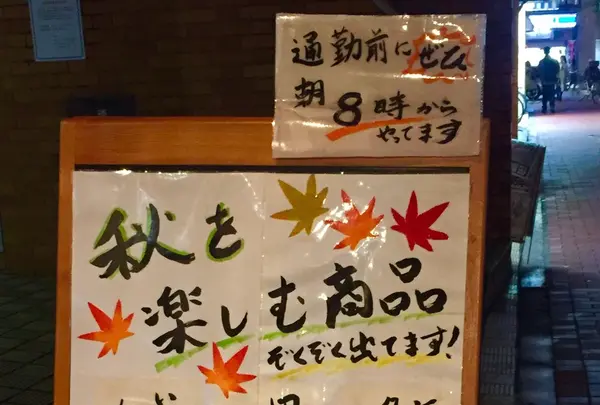 通勤前にぜひ
朝8時から
やってます
秋を
楽しむ商品
ぞくぞく出てます!